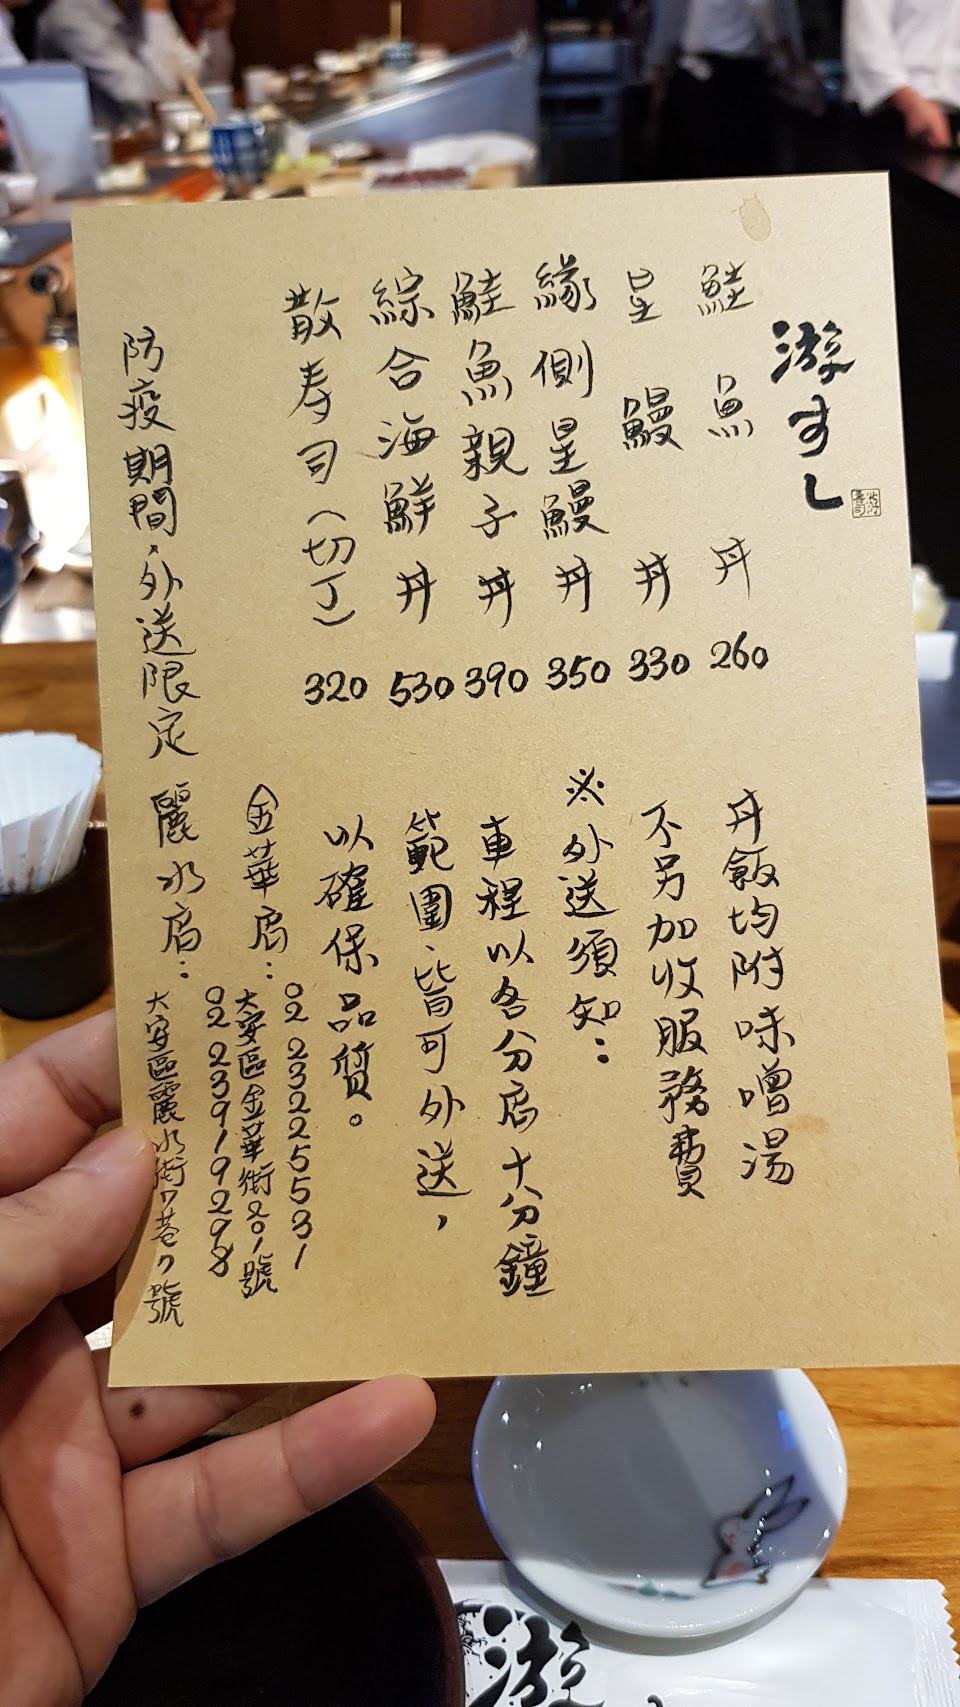 游すし
游壽司
鮭魚丼 260
星鰻丼 330
緣側星鰻丼 350
鮭魚親子丼 390
綜合海鮮丼 530
散寿司（切丁） 320
防疫期間，外送限定
丼飯均附味噌湯
不另加收服務費
※外送須知：
車程以各分店十分鐘
範圍、皆可外送，
以確保品質。
金華店：
02 23225531
大安區金華街201號
麗水店：
02 23919298
大安區麗水街7巷7號
游